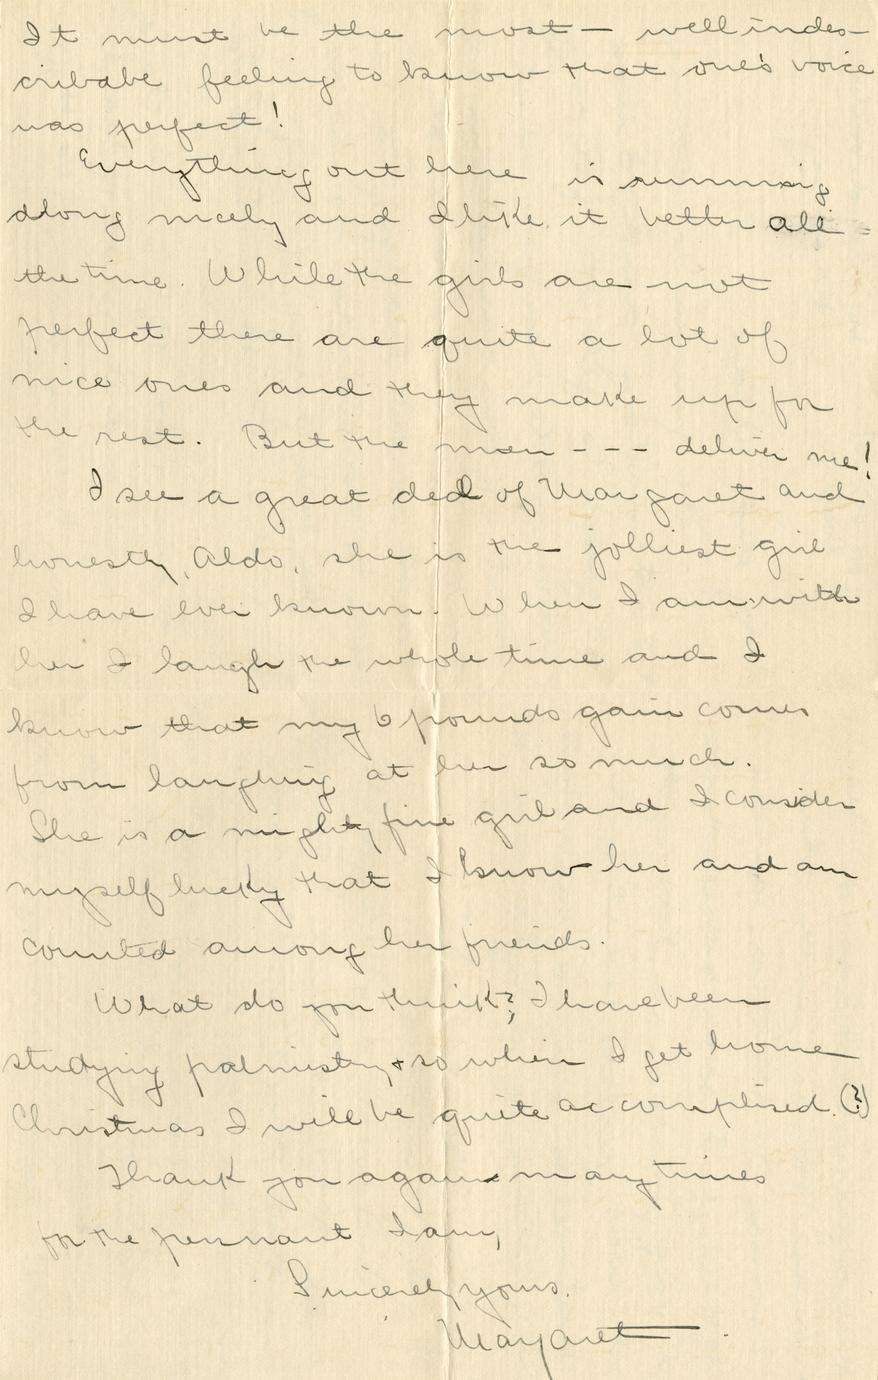 It must be the most — well indes-
cribabe feeling to know that one's voice
was perfect!
Everything out here is running
along nicely and I like it better all
the time. While the girls are not
perfect there are quite a lot of
nice ones and they make up for
the rest. But the men - - - deliver me!
I see a great deal of Margaret and
honestly, Aldo, she is the jolliest girl
I have ever known. When I am with
her I laugh the whole time and I
know that my 6 pounds gain comes
from laughing at her so much.
She is a mighty fine girl and I consider
myself lucky that I know her and am
counted among her friends.
What do you think? I have been
studying palmistry & so when I get home
Christmas I will be quite accomplised. (?)
Thank you again many times
for the pennant I am,
Sincerely yours.
Margaret